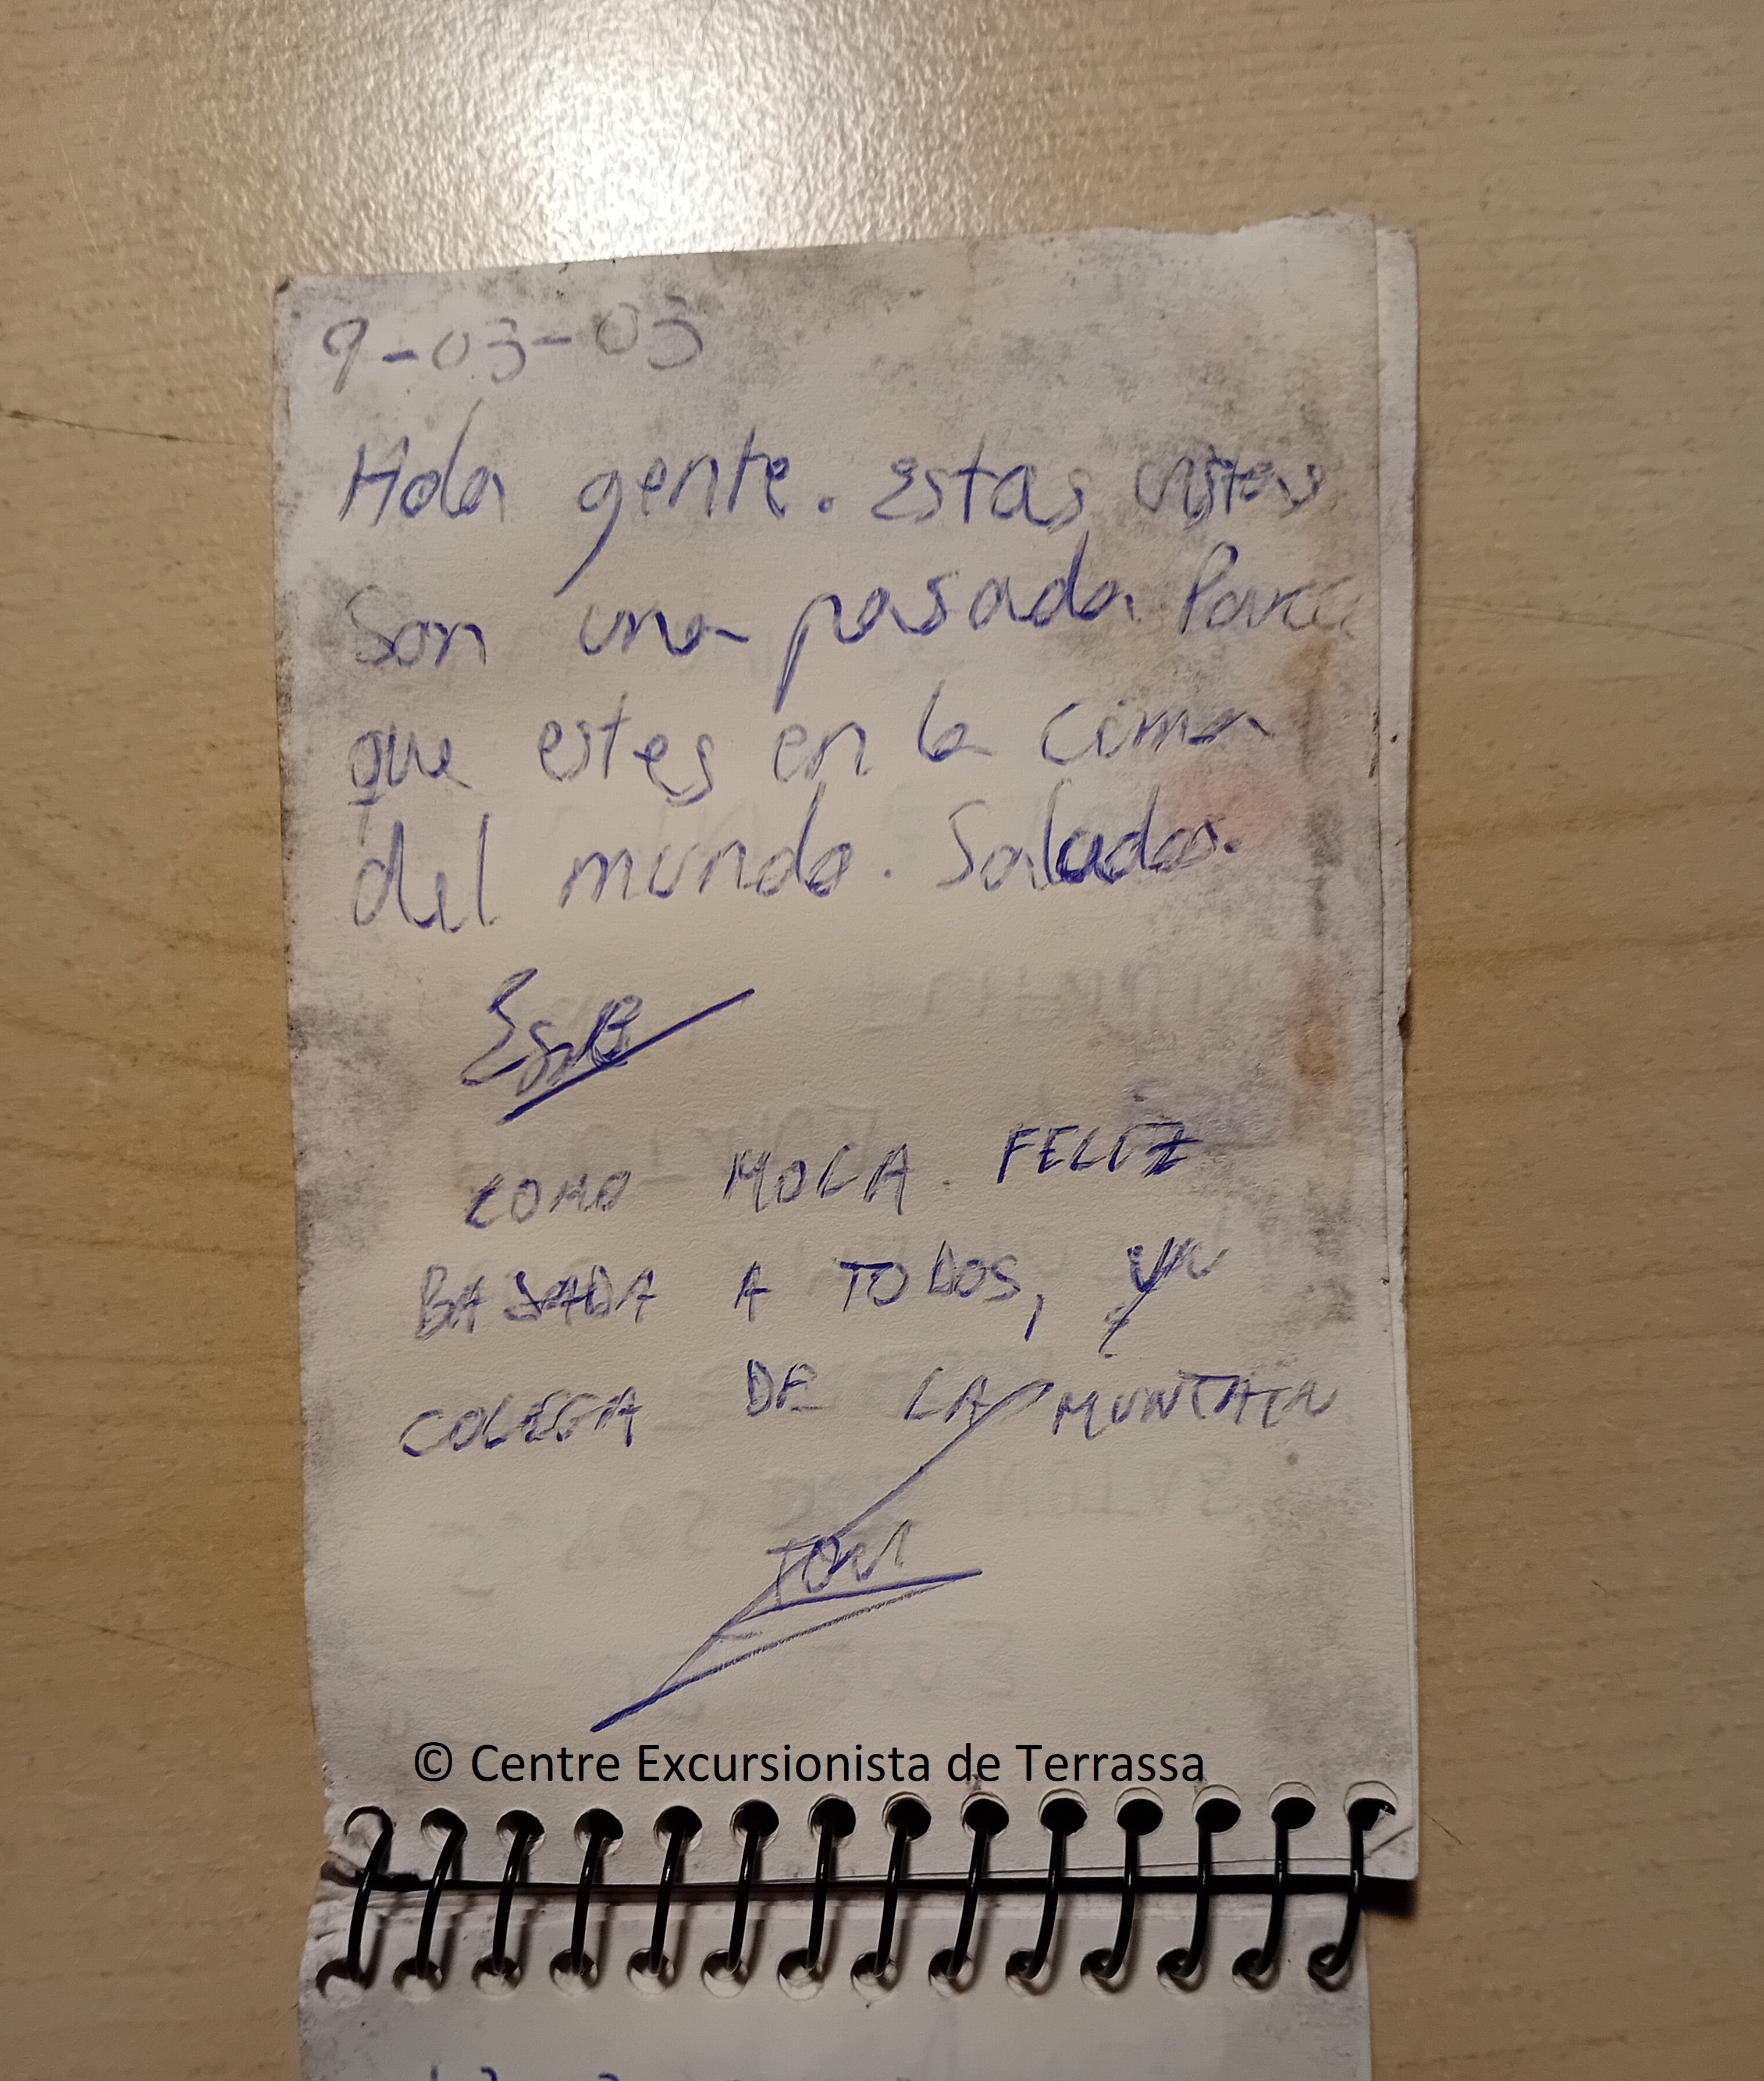 9-03-03
Hola gente. Estas vistas
son una pasada. Parece
que estes en la cima
del mundo. Saludos.
COMO MOLA. FELIZ
BAJADA A TODOS, UN
COLEGA DE LA MUNTAÑA
TONI
© Centre Excursionista de Terrassa